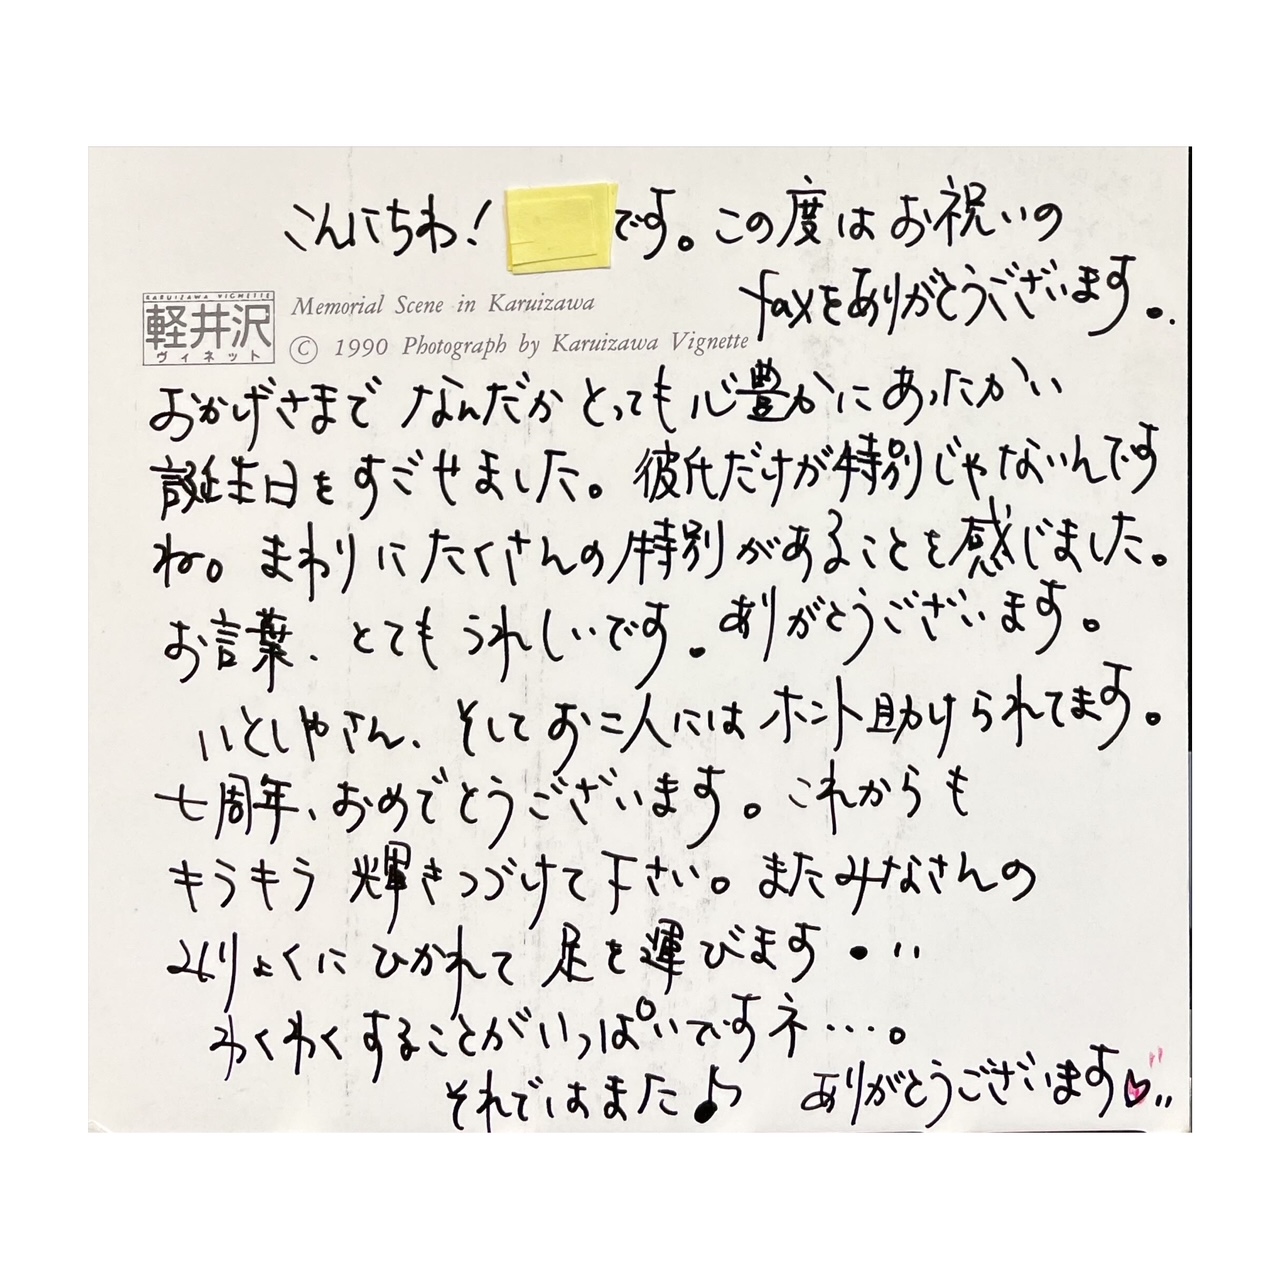 こんにちわ! です。この度はお祝いの
faxをありがとうございます。.
KARUIZAWA VIGNETTE
軽井沢
ヴィネット
Memorial Scene in Karuizawa
© 1990 Photograph by Karuizawa Vignette
おかげさまで なんだか とっても 心豊かに あったかい
誕生日を すごせました。彼氏だけが特別じゃないんです
ね。まわりに たくさんの特別があることを感じました。
お言葉、とてもうれしいです。ありがとうございます。
いとしやさん、そしてお二人には ホント助けられてます。
七周年、おめでとうございます。これからも
キラキラ 輝きつづけて下さい。またみなさんの
みりょくに ひかれて 足を運びます・・・
わくわくすることがいっぱいですネ…。
それではまた♪ ありがとうございます♡〃